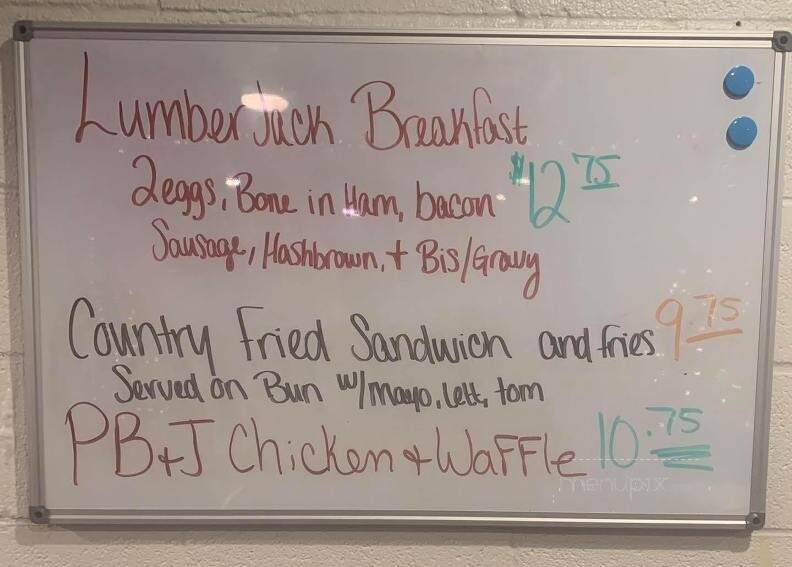 Lumber Jack Breakfast
2eggs, Bone in Ham, bacon $12 75
Sausage, Hashbrown, + Bis/Gravy
Country Fried Sandwich and fries 9 75
Served on Bun w/mayo, lett, tom
PB+J Chicken + Waffle 10.75
menupix